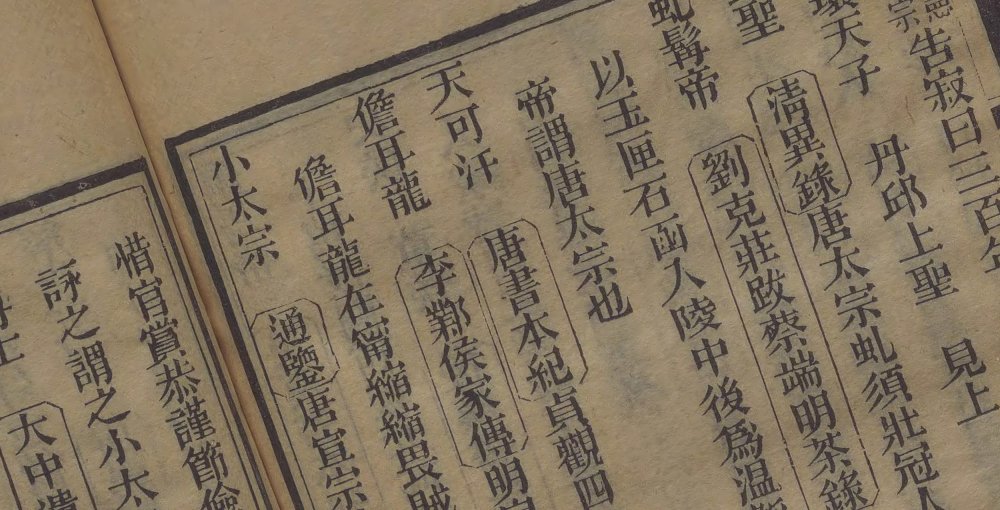 告寂曰三百年
天子 丹邱上聖 見上
聖 清異錄唐太宗虬須壯冠人
虬髯帝 劉克莊跋蔡端明茶錄
以玉匣石函入陵中後爲温
帝謂唐太宗也
天可汗 唐書本紀貞觀四
儋耳龍 李鄴侯家傳明
儋耳龍在甯縮縮畏賊
小太宗 通鑒唐宣宗
惜官賞恭謹節儉
詠之謂之小太
大中遺
上